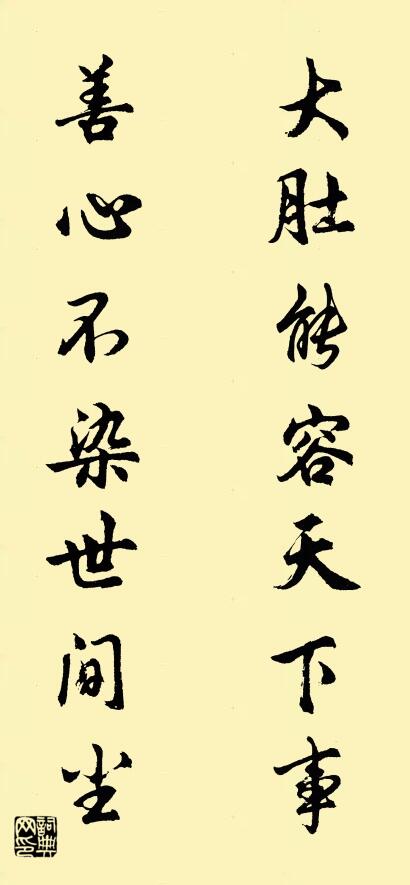 大肚能容天下事
善心不染世间尘
詞典
网印